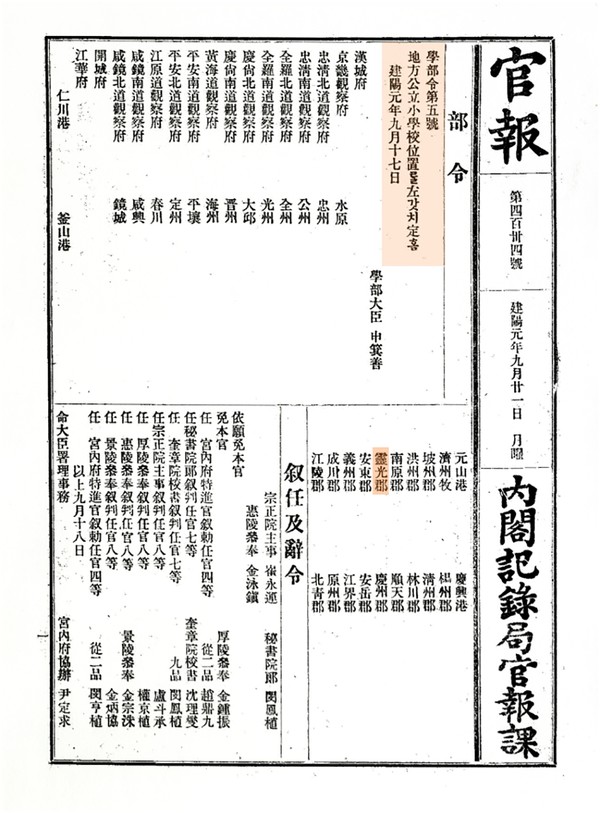 官報
第四百卅四號
建陽元年九月廿一日 月曜
內閣記錄局官報課
部令
學部令第五號
地方公立小學校位置를左갓치定홈
建陽元年九月十七日
學部大臣 申箕善
漢城府
京畿觀察府 水原
忠淸北道觀察府 忠州
忠淸南道觀察府 公州
全羅北道觀察府 全州
全羅南道觀察府 光州
慶尙北道觀察府 大邱
慶尙南道觀察府 晋州
黃海道觀察府 海州
平安南道觀察府 平壤
平安北道觀察府 定州
江原道觀察府 春川
咸鏡南道觀察府 咸興
咸鏡北道觀察府 鏡城
開城府
江華府 仁川港 釜山港
元山港 慶興港
濟州牧 楊州郡
坡州郡 淸州郡
洪州郡 林川郡
南原郡 順天郡
靈光郡 慶州郡
安東郡 安岳郡
義州郡 江界郡
成川郡 原州郡
江陵郡 北靑郡
叙任及辭令
宗正院主事 崔永運 秘書院郎 閔鳳植
惠陵叅奉 金泳鎭
依願免本官
厚陵叅奉 金鍾振
免本官
任 宮內府特進官叙勅任官四等 從二品 趙鼎九
任秘書院郎叙判任官七等 奎章院校書 沈理燮
任 奎章院校書叙判任官七等 九品 閔鳳植
任宗正院主事叙判任官八等 盧斗承
任 厚陵叅奉叙判任官八等 權京植
任 惠陵叅奉叙判任官八等 景陵叅奉 金宗洙
任 景陵叅奉叙判任官八等 金炳協
任 宮內府特進官叙勅任官四等 從二品 閔亨植
以上九月十八日
命大臣署理事務 宮內府協辦 尹定求
一